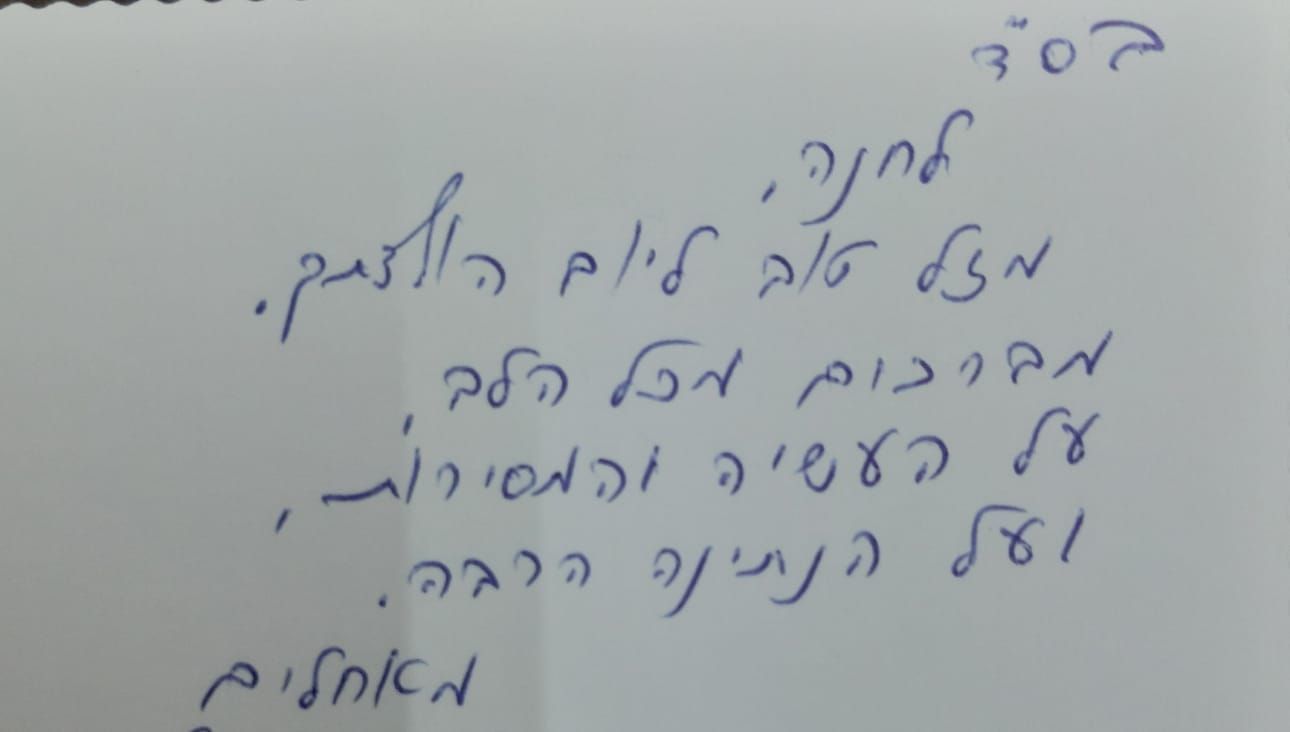 בס"ד
לחנה,
מזל טוב ליום הולדתך.
מברכים מכל הלב,
על העשיה והמסירות,
ועל הנתינה הרבה.
מאחלים